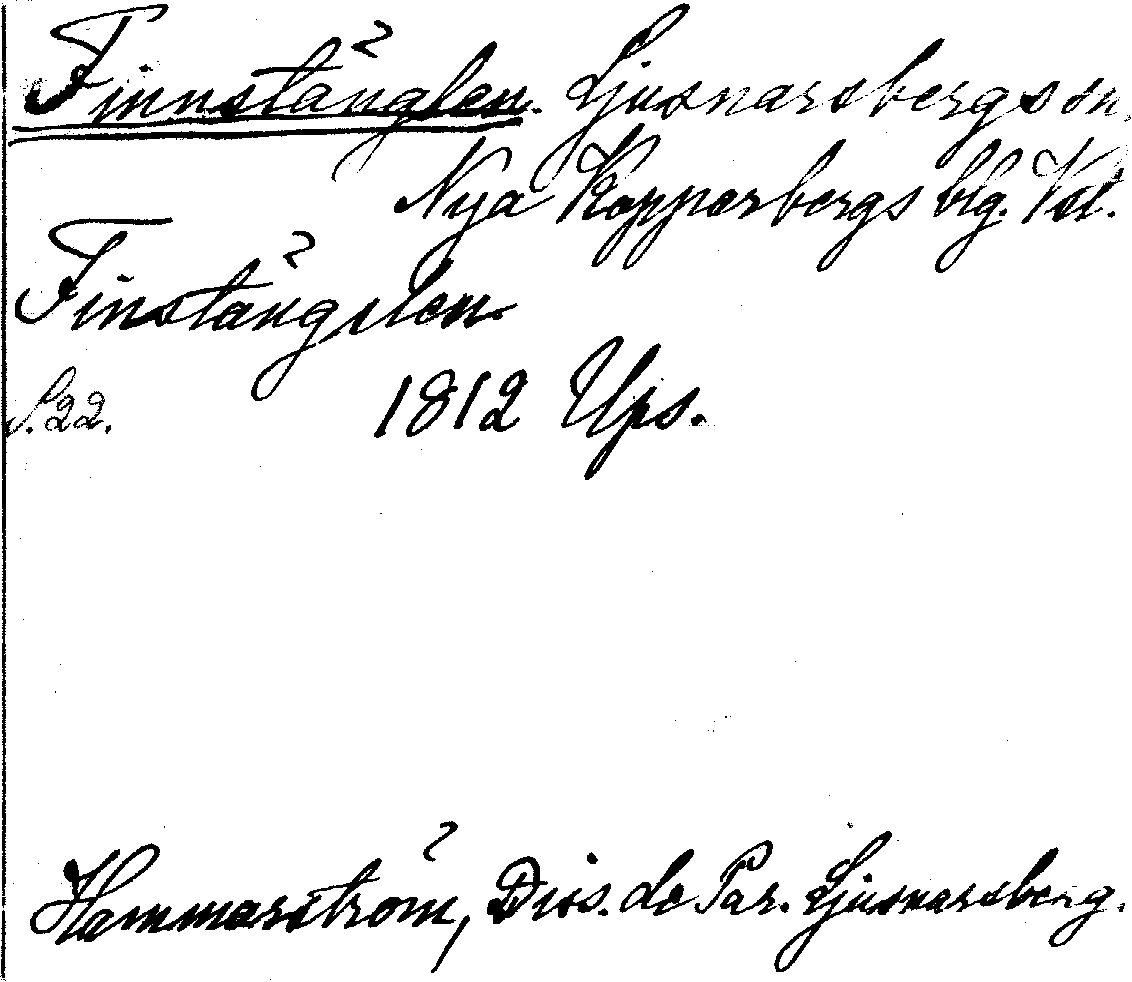 Finnstänglen. Ljusnarsbergs sn,
Nya Kopparbergs blg. Vstl.
Finstängslen
S. 22. 1812 Ups.
Hammarström, Diss. de Par. Ljusnarsberg.